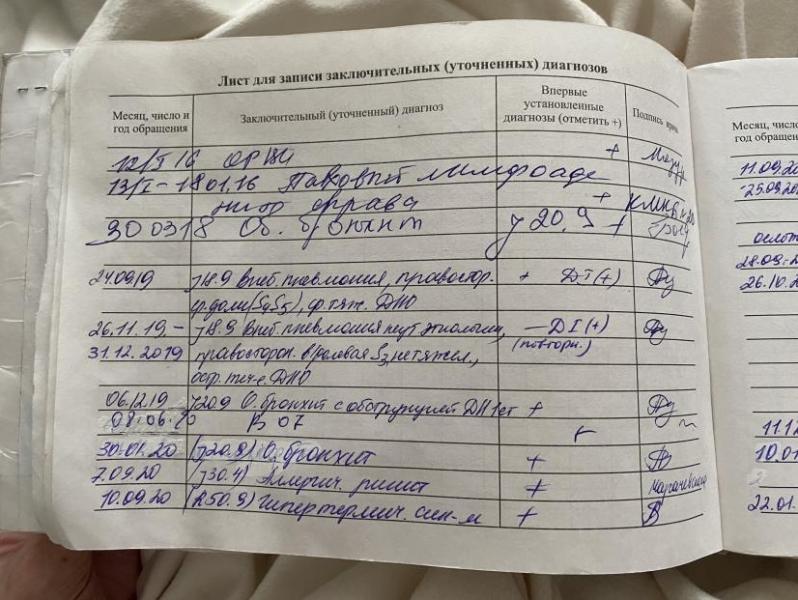 Лист для записи заключительных (уточненных) диагнозов
Месяц, число и год обращения
Заключительный (уточненный) диагноз
Впервые установленные диагнозы (отметить +)
Подпись врача
12/I 16 ОРВИ + Мазур
13/I - 18 01.16 Паховый лимфоаде
нит справа +
30 03 18 Об. бронхит J 20.9 +
24.09.19 J18.9 Внеб. пневмония, правостор. + ДI(+)
ср. доли (S4S5), ср. тяж. ДN0
26.11.19.- J18.9 Внеб. пневмония неут. этиологии, - ДI(+)
31.12.2019 правосторон. в/долевая S3, нетяжел., (повторн.)
остр. теч-е ДN0
06.12.19 J20.9 О. бронхит с обструкцией ДН 1ст +
08.06.20 В 07 +
30.01.20 (J20.9) О. бронхит +
7.09.20 (J30.4) Аллергич. ринит +
10.09.20 (R50.9) Гипертермич. син-м +
Месяц, число
год обращения
11.09.20
25.09.20
осмот
28.09.2
26.10.2
11.12
10.01
22.01.